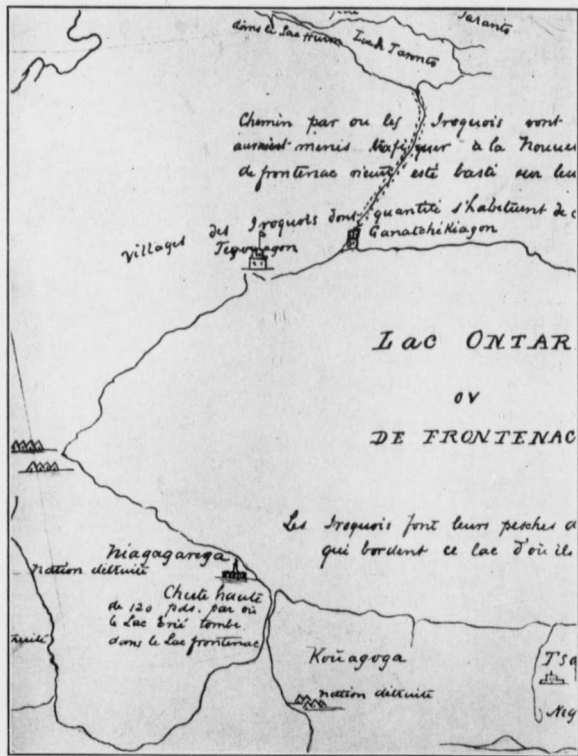 Taranto
dans le Lac Huron
Lac de Taronto
Chemin par ou les Iroquois vont
auroient menés trafiquer a la Nouve
de frontenac n'eust esté basti sur leu
villages des Iroquois dont quantité s'habituent de
Teyoyagon
Ganatchekiagon
LaC ONTAR
OV
DE FRONTENAC
Les Iroquois font leurs pesches d
qui bordent ce lac d'où ils
Niagagarega
nation détruite
Chute haute
de 120 pds. par où
le Lac Erié tombe
dans le Lac frontenac
truite
Koüagoga
nation détruite
Tsa
Neg